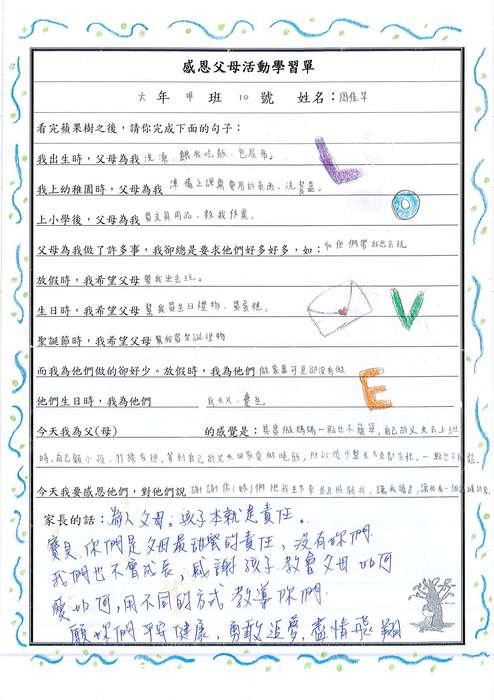 感恩父母活動學習單
六年甲班10號 姓名：周佳
看完蘋果樹之後，請你完成下面的句子：
我出生時，父母為我洗澡、餵我吃飯、包尿布。
我上幼稚園時，父母為我準備上課需要用的東西、洗餐盒。
上小學後，父母為我買文具用品、教我作業。
父母為我做了許多事，我卻總是要求他們好多好多，如：叫他們帶我出去玩
放假時，我希望父母帶我出去玩。
生日時，我希望父母幫我買生日禮物、買蛋糕。
聖誕節時，我希望父母幫我買聖誕禮物
而我為他們做的卻好少。放假時，我為他們做家事可是卻沒有做
他們生日時，我為他們
今天我為父(母) 的感覺是：其實做媽媽一點也不簡單，自己的丈夫去上班
時，自己顧小孩、打掃房裡，等到自己的丈夫回家要做晚飯，所以
L O V E
今天我要感恩他們，對他們說謝謝你(妳)們把我生下來並且照顧我，讓我
家長的話：為人父母。孩子本就是責任。
寶貝，你們是父母最甜蜜的責任，沒有妳們
我們也不會成長，感謝孩子教會父母如何
愛如何，用不同的方式教導你們。
願妳們平安健康，勇敢追夢，盡情飛翔